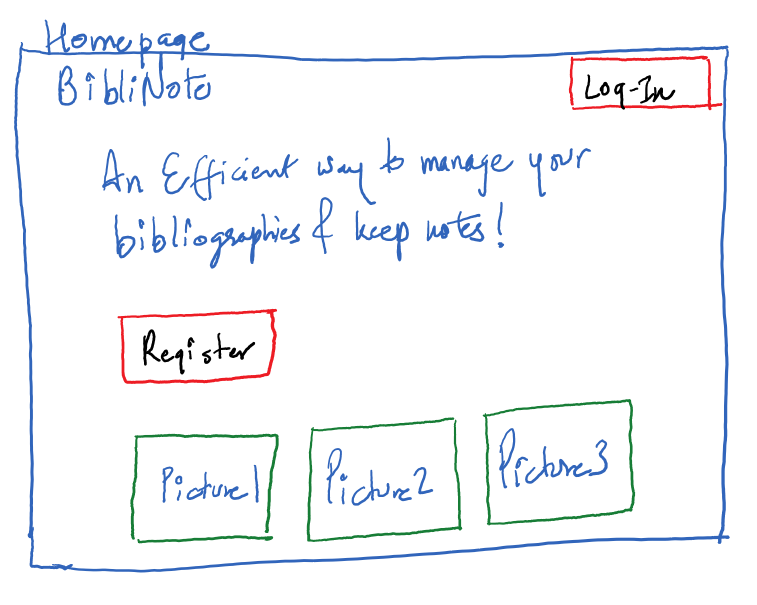 Homepage
BibliNoto
Log-In
An Efficient way to manage your
bibliographies & keep notes!
Register
Picture1
Picture2
Picture3